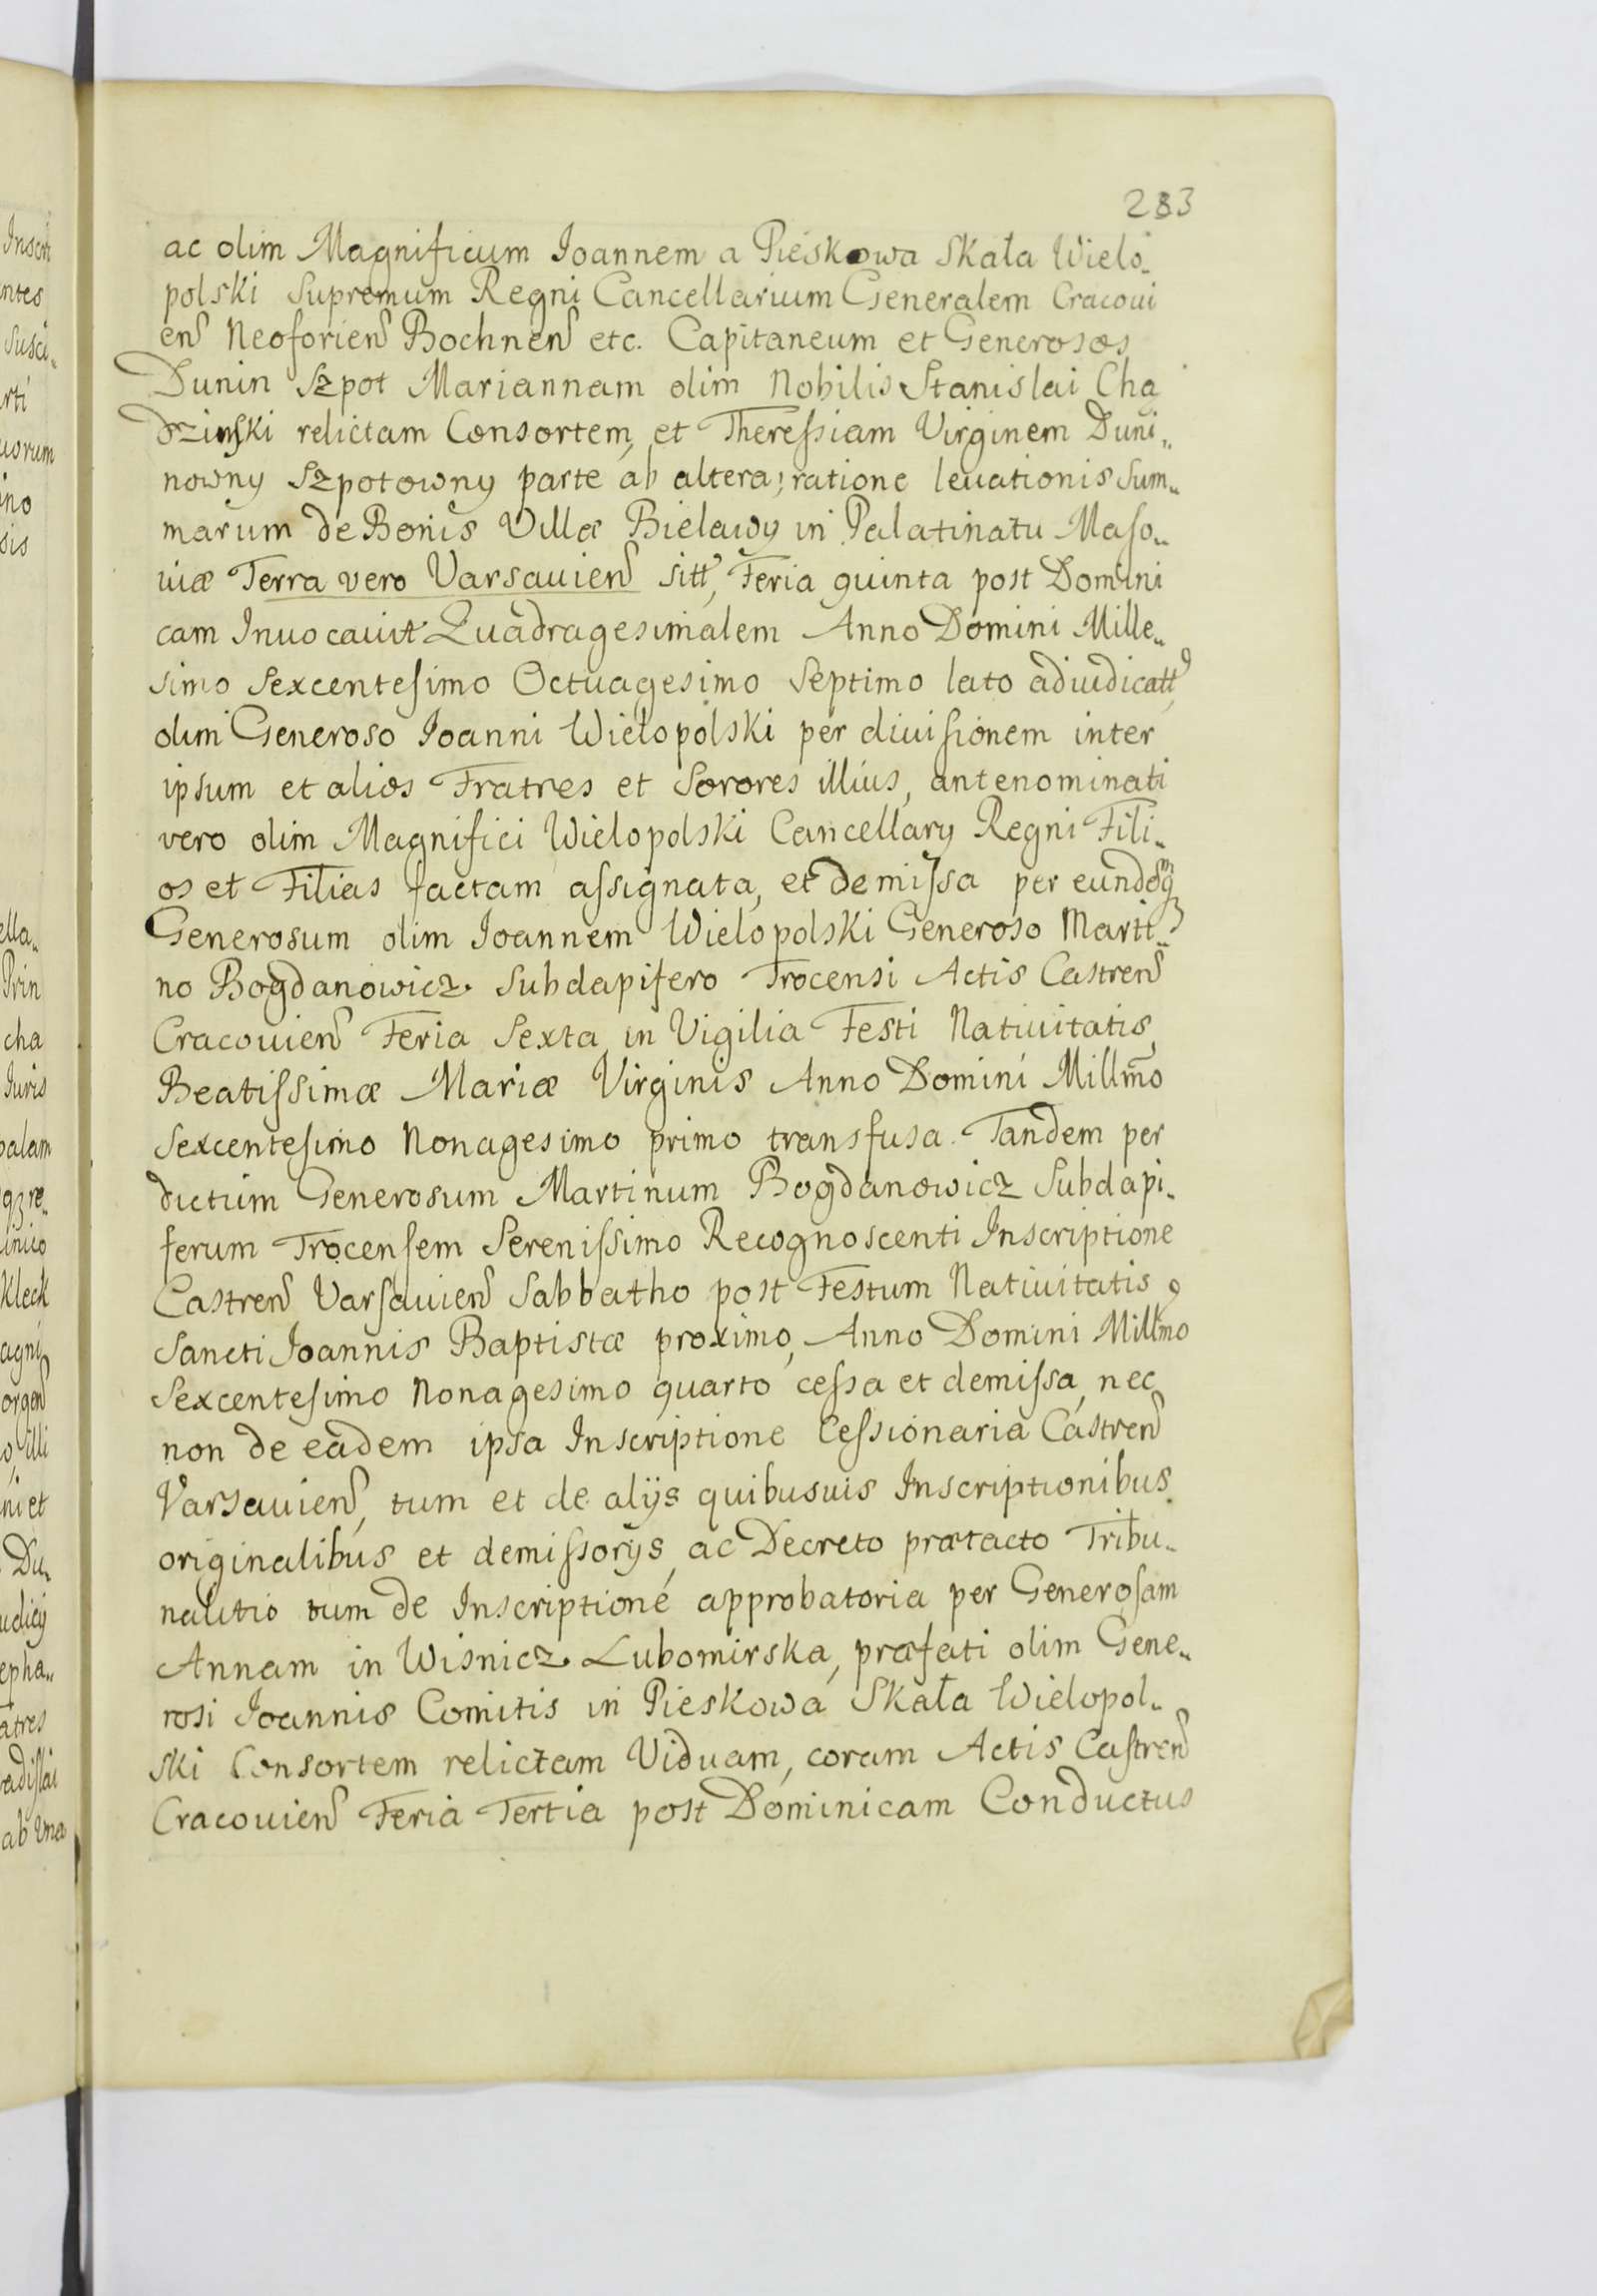 283
ac olim Magnificum Ioannem a Pieskowa Skała Wielo„
polski Supremum Regni Cancellarium Generalem Cracoui
en̄ Neoforien̄ Bochnen̄ etc. Capitaneum et Generosos
Dunin Szpot Mariannam olim Nobilis Stanislai Cha
dzinſki relictam Consortem, et Thereſsiam Virginem Duni„
nowny Szpotowny parte ab altera; ratione leuationis Sum„
marum de Bonis Villæ Bielawy in Palatinatu Maſo„
uiæ Terra vero Varsauien̄ sitt, Feria quinta post Domini
cam Inuocauit Quadragesimalem Anno Domini Mille„
simo Sexcenteſimo Octuagesimo Septimo lato adiudicatt,
olim Generoso Ioanni Wielopolski per diuiſionem inter
ipsum et alios Fratres et Sorores illius, antenominati
vero olim Magnifici Wielopolski Cancellary Regni Fili„
os et Filias factam aſsignata, et demiſsa per eundemqꝫ
Generosum olim Ioannem Wielopolski Generoso Marti„
no Bogdanowicz Subdapifero Trocensi Actis Castren̄
Cracouien̄ Feria Sexta in Vigilia Festi Natiuitatis
Beatiſsimæ Mariæ Virginis Anno Domini Millm̄o
Sexcenteſimo Nonagesimo primo transfusa. Tandem per
dictum Generosum Martinum Bogdanowicz Subdapi„
ferum Trocenſem Sereniſsimo Recognoscenti Inscriptione
Castren̄ Varſauien̄ Sabbatho post Festum Natiuitatis
Sancti Ioannis Baptistæ proximo, Anno Domini Millm̄o
Sexcenteſimo Nonagesimo quarto ceſsa et demiſsa, nec
non de eadem ipsa Inscriptione Ceſsionaria Castren̄
Varsauien̄, tum et de alijs quibusuis Inscriptionibus
originalibus et demiſsorijs, ac Decreto prætacto Tribu„
nalitio tum de Inscriptione approbatoria per Generoſam
Annam in Wisnicz Lubomirska, præfati olim Gene„
rosi Ioannis Comitis in Pieskowa Skała Wielopol„
ski Consortem relictam Viduam, coram Actis Caſtren̄
Cracouien̄ Feria Tertia post Dominicam Conductus